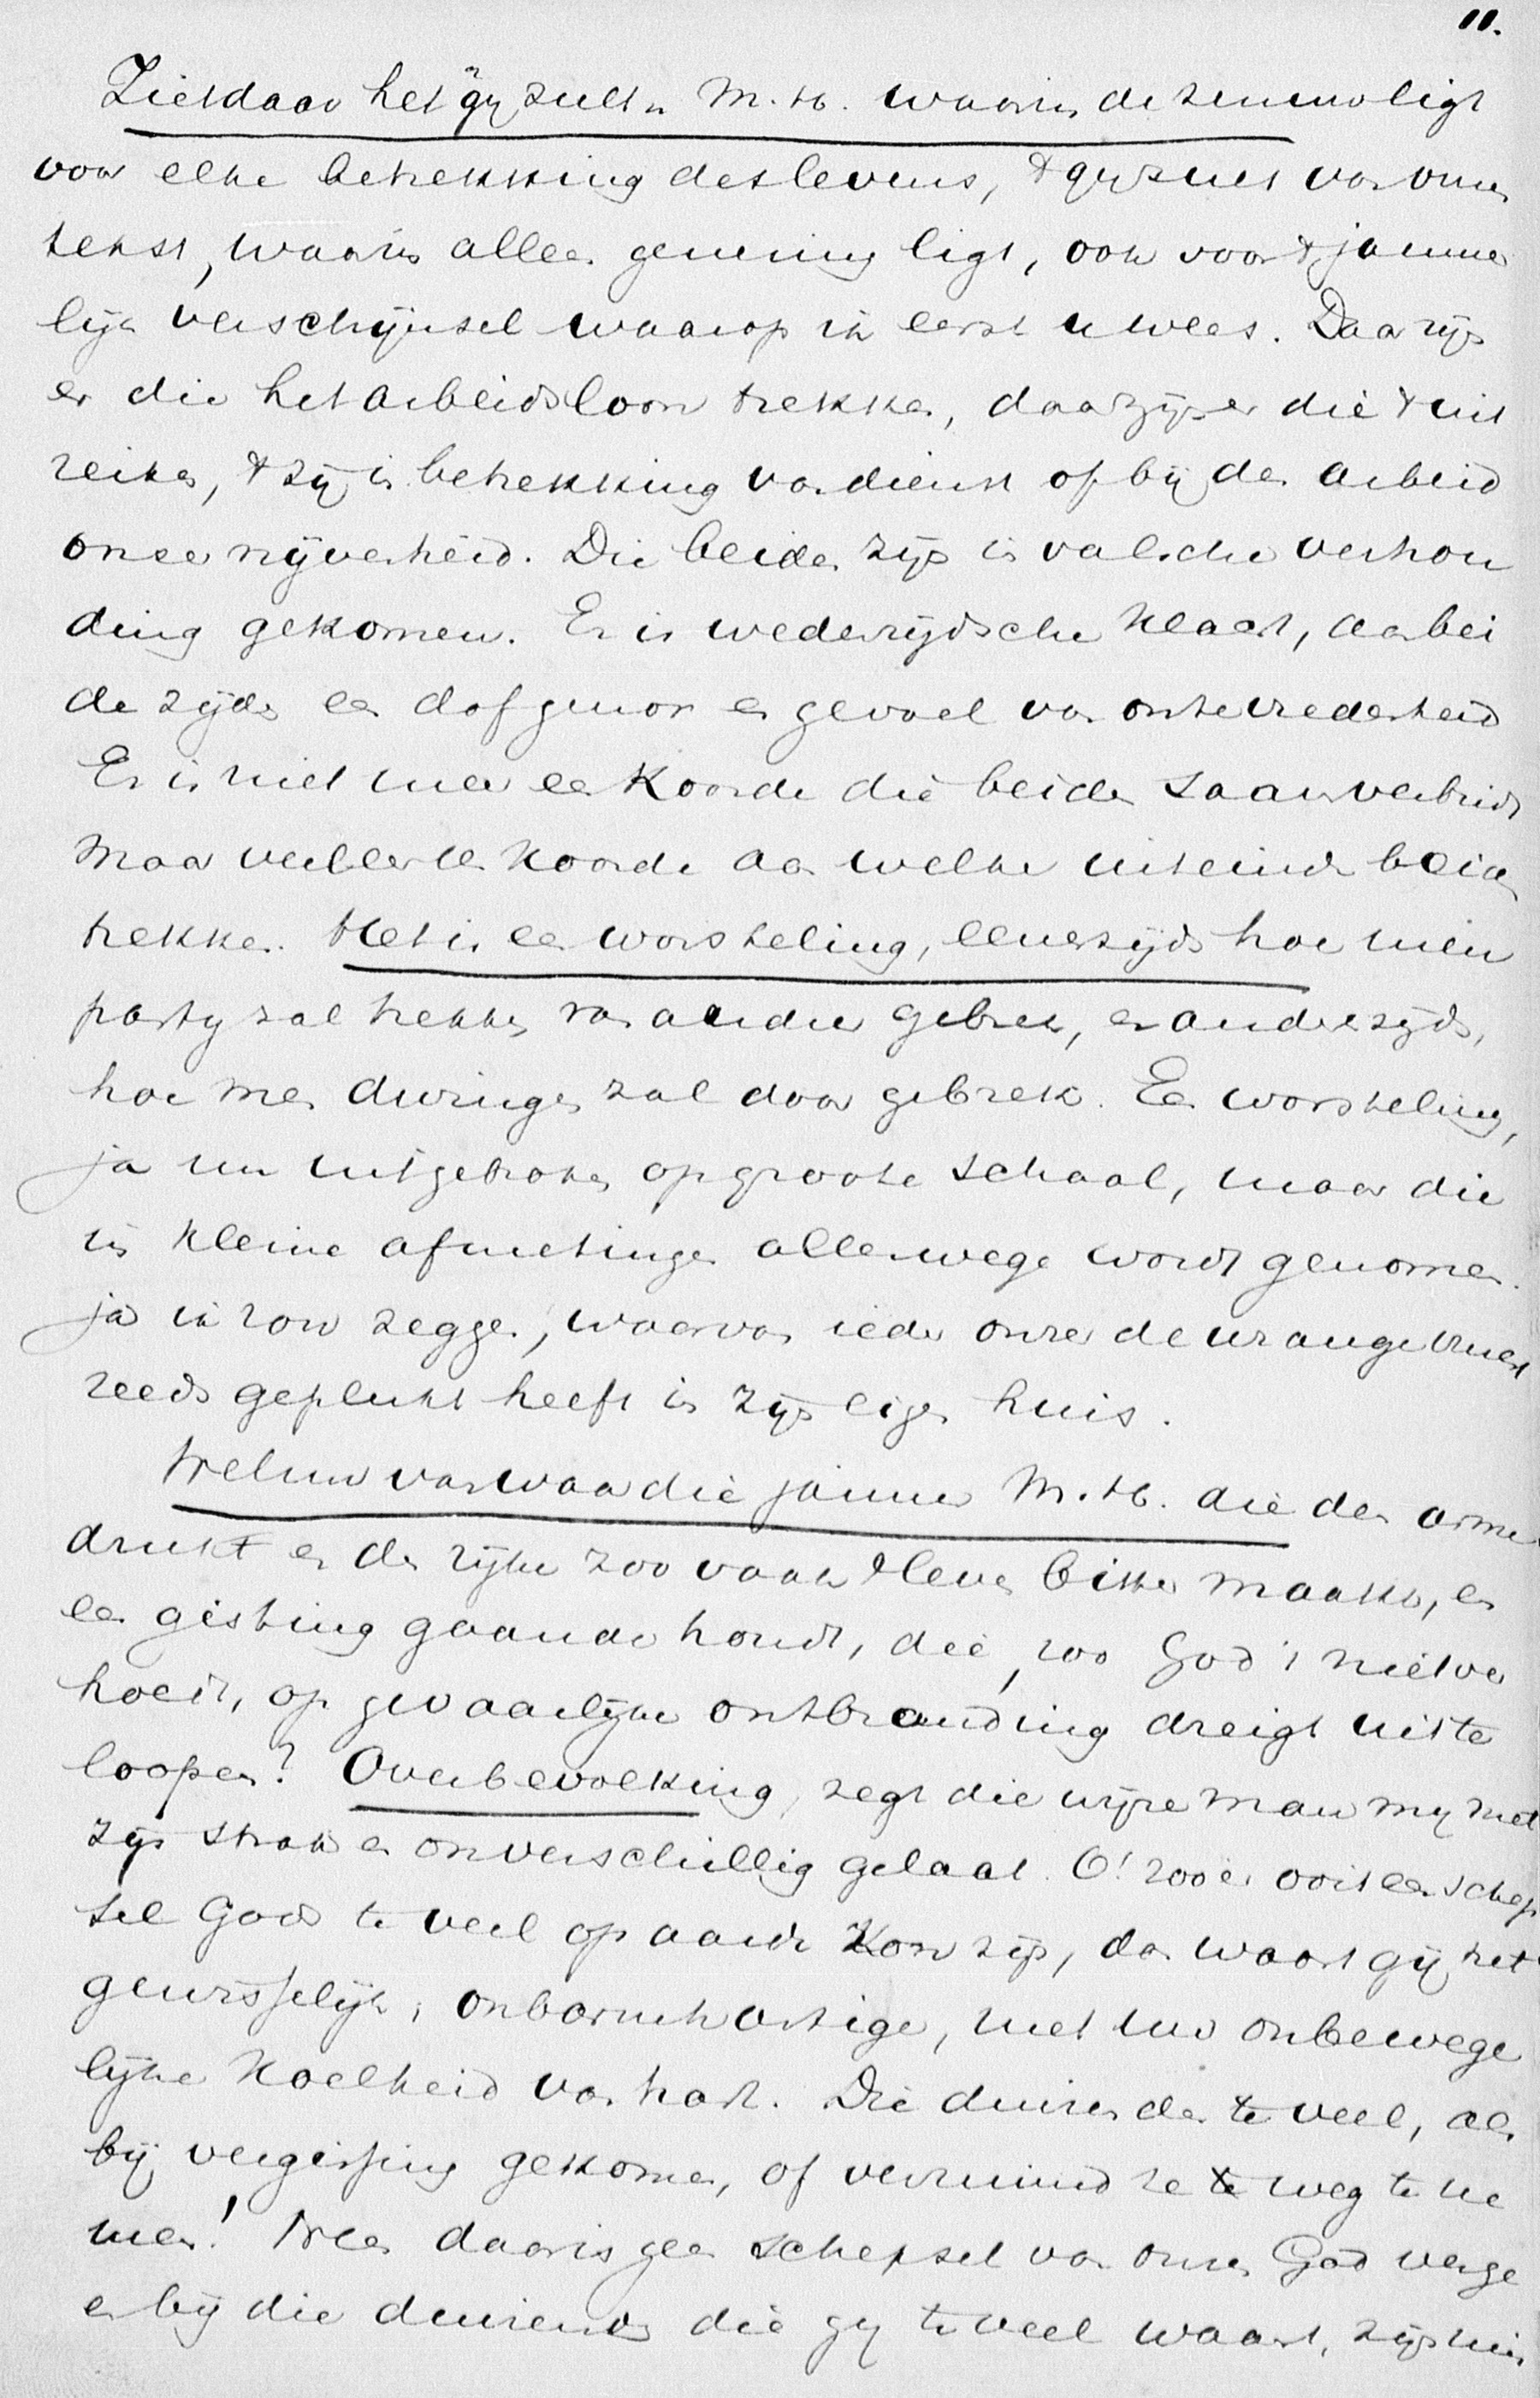 11.
Ziet daar het "gij zult" M. H. waarin de zenuw ligt
voor elke betrekking des levens, 't gij zult van onzen
tekst, waarin alleen genezing ligt, ook voor 't jamme
lijk verschijnsel waarop ik eerst u wees. Daar zijn
er die het arbeidsloon trekken, daar zijn er die 't uit
reiken, 't zij in betrekking van dienst of bij den arbeid
onzer nijverheid. Die beiden zijn in valsche verhou
ding gekomen. Er is wederzijdsche klacht, aan bei
de zijden een dof gemor en gevoel van ontevredenheid
Er is niet meer een koorde die beiden saamverbindt
maar veeleer een koorde aan welke uiteinden beiden
trekken. Het is een worsteling, eenerzijds hoe men
partij zal trekken van ander gebrek, en anderzijds,
hoe men dwingen zal door gebrek. Een worsteling,
ja nu uitgebroken op groote schaal, maar die
in kleine afmetingen allerwege wordt genomen.
ja ik zou zeggen, waarvan ieder onzer de wrange vrucht
reeds geplukt heeft in zijn eigen huis.
Welnu van waar die jammer M. H. die den armen
drukt en den rijke zoo vaak 't leven bitter maakt, en
een gisting gaande houdt, die, zoo God 't niet ver
hoedt, op gevaarlijke ontbranding dreigt uit te
loopen? Overbevolking, zegt die wijze man mij met
zijn strak en onverschillig gelaat. O! zoo er ooit een schep
sel Gods te veel op aarde kon zijn, dan waart gij het
gewisselijk, onbarmhartige, met uw onbewege
lijke koelheid van hart. Die duizenden te veel, als
bij vergissing gekomen, of verzuimd ze te weg te ne
men! Neen daar is geen schepsel van onzen God verge
en bij die duizenden die gij te veel waant, zijn hier